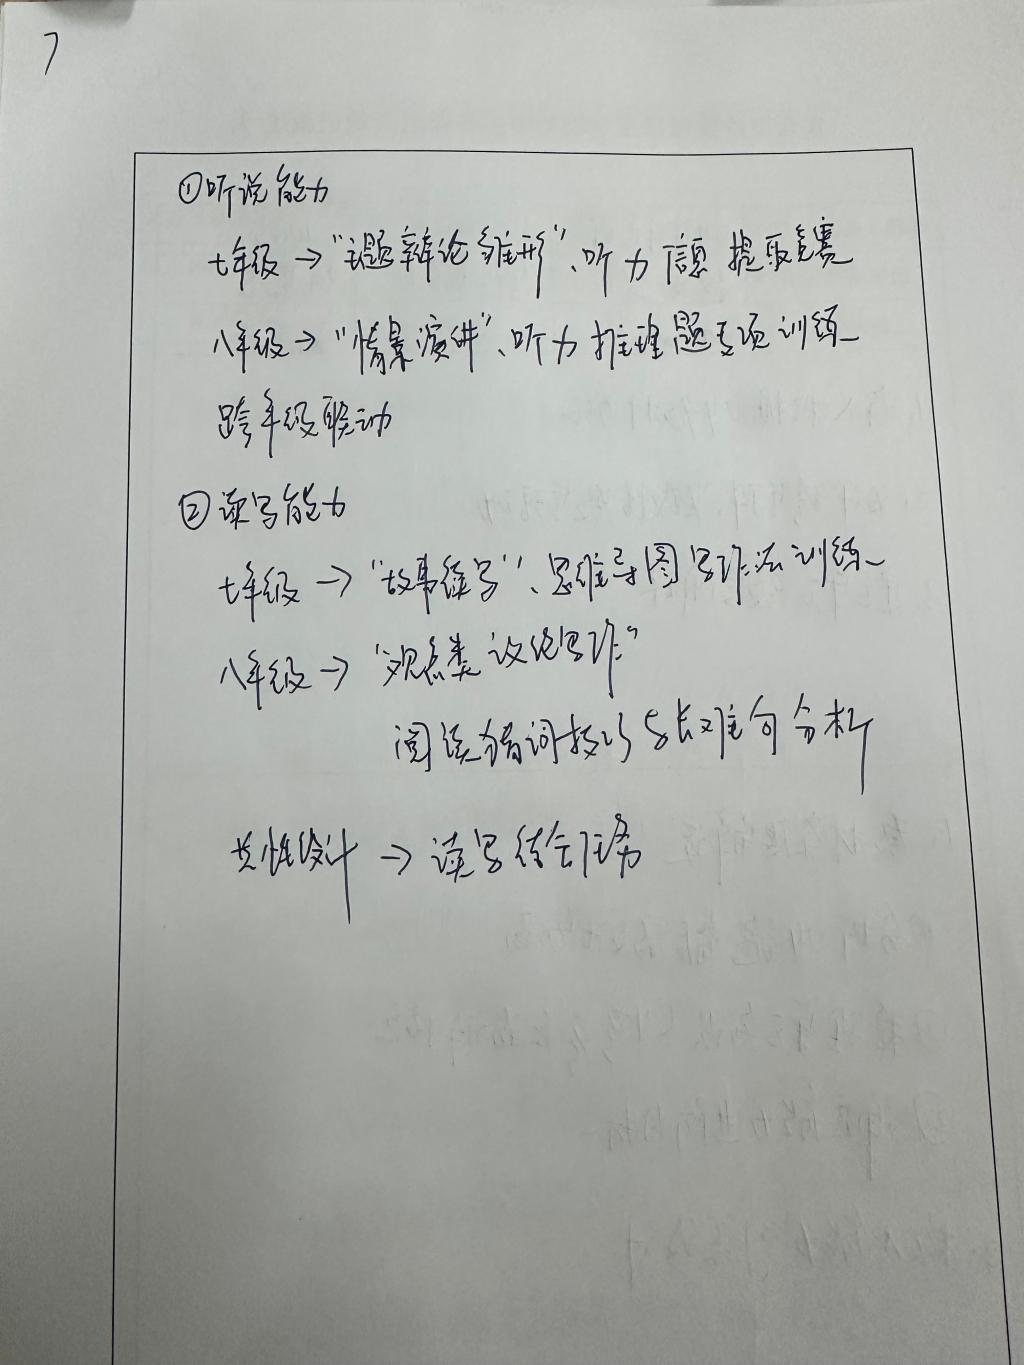 7
①听说能力
七年级→“主题辩论雏形”、听力信息提取竞赛
八年级→“情景演讲”、听力推理题专项训练
跨年级联动
②读写能力
七年级→“故事续写”、思维导图写作法训练
八年级→“观点类议论写作”
阅读猜词技巧与长难句分析
共性设计→读写结合任务